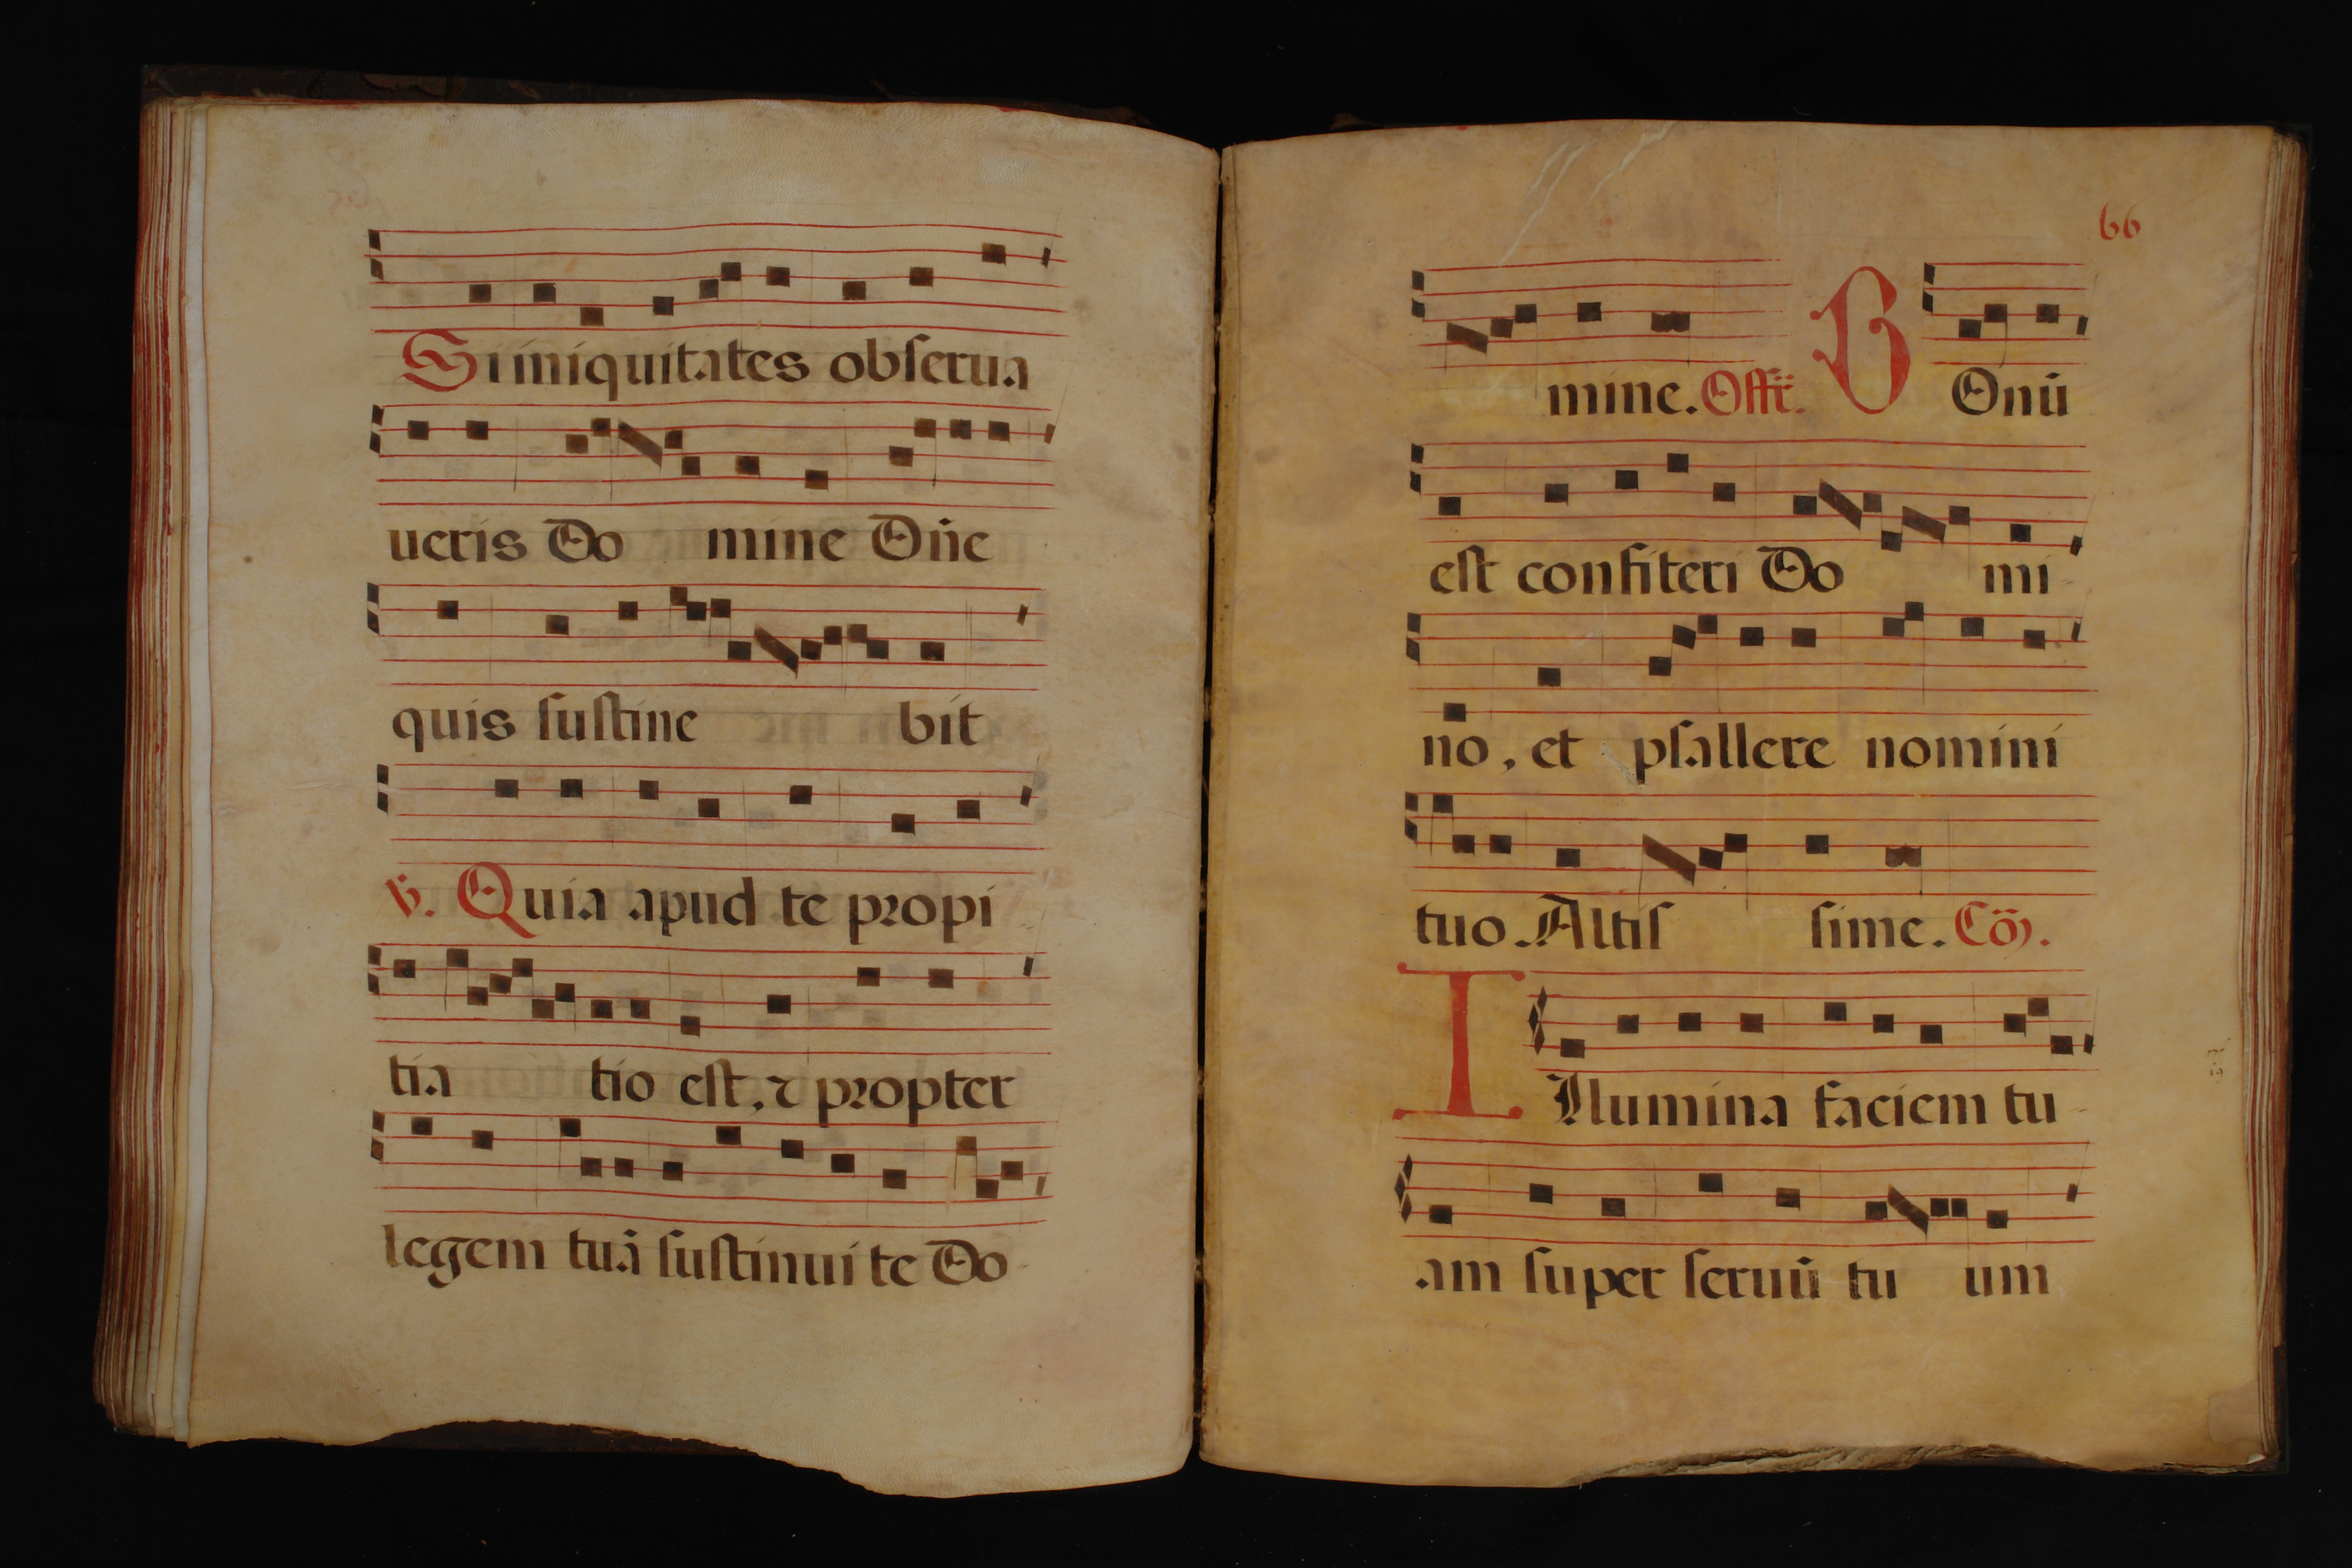 Si iniquitates obserua
ueris Do mine Dñe
quis sustine bit
℣. Quia apud te propi
tia tio est, ⁊ propter
legem tuã sustinui te Do
66
mine. Offr̃. B Onũ
est confiteri Do mi
no, et psallere nomini
tuo. Altis sime. Cõ.
I Llumina faciem tu
am super seruũ tu um